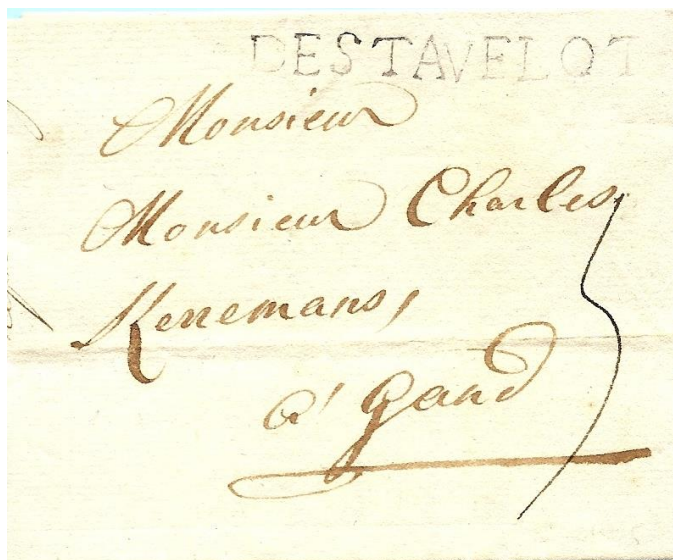 DESTAVELOT
Monsieur
Monsieur Charles
Kerremans,
a' gand